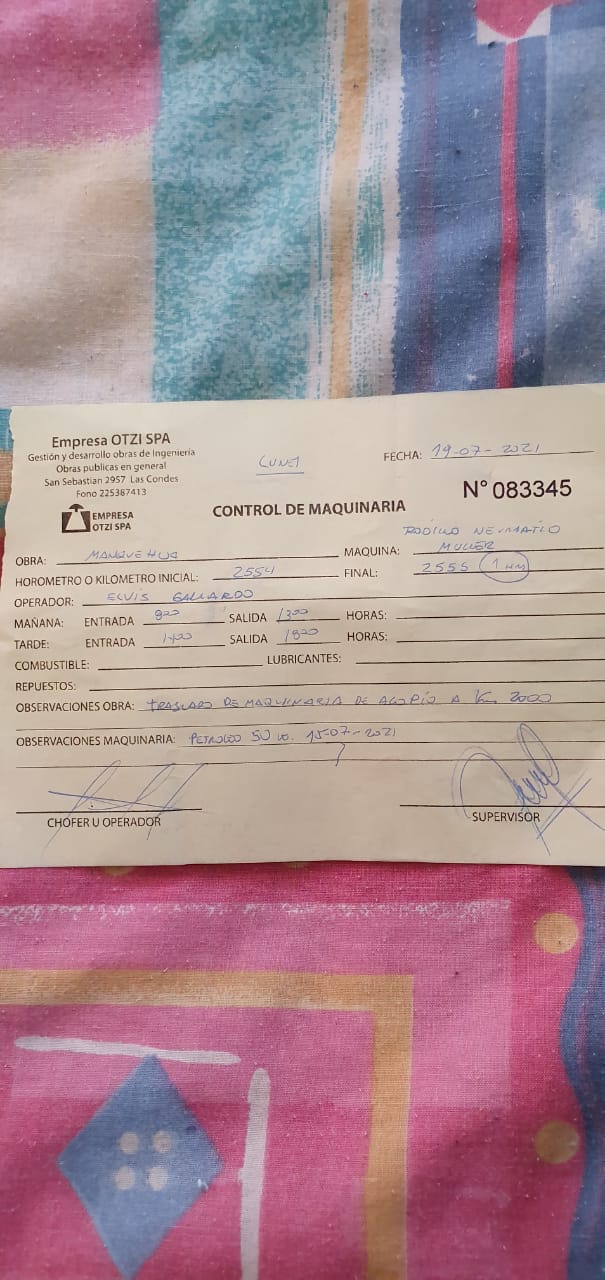 Empresa OTZI SPA
Gestión y desarrollo obras de Ingeniería
Obras publicas en general
San Sebastian 2957 Las Condes
Fono 225387413
EMPRESA
OTZI SPA
LUNES
FECHA: 19-07-2021
N° 083345
CONTROL DE MAQUINARIA
RODILLO NEUMATICO
OBRA: MANQUEHUE MAQUINA: MULLER
HOROMETRO O KILOMETRO INICIAL: 2554 FINAL: 2555 (1 HM)
OPERADOR: ELVIS GALLARDO
MAÑANA: ENTRADA 800 SALIDA 1300 HORAS:
TARDE: ENTRADA 1400 SALIDA 1800 HORAS:
COMBUSTIBLE: LUBRICANTES:
REPUESTOS:
OBSERVACIONES OBRA: TRASLADO DE MAQUINARIA DE ACOPIO A Km 2000
OBSERVACIONES MAQUINARIA: PETROLEO 50 15-07-2021
CHOFER U OPERADOR
SUPERVISOR